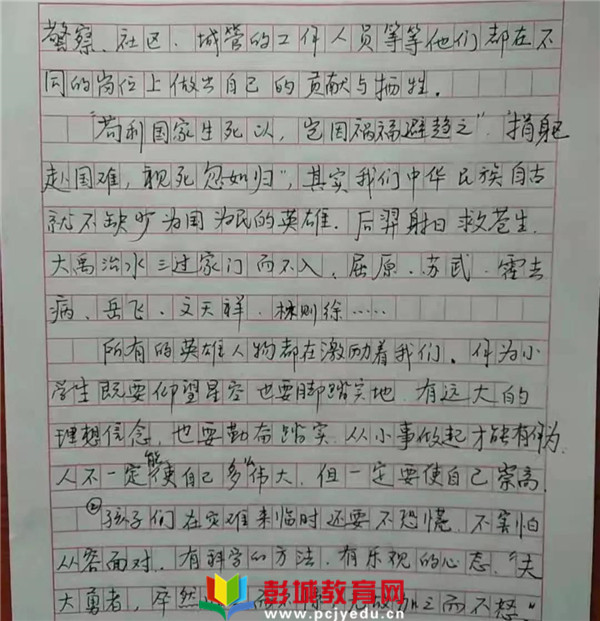 警察、社区、城管的工作人员等等他们都在不
同的岗位上做出自己的贡献与牺牲。
“苟利国家生死以，岂因祸福避趋之”，“捐躯
赴国难，视死忽如归”，其实我们中华民族自古
就不缺少为国为民的英雄．后羿射日救苍生．
大禹治水三过家门而不入、屈原、苏武、霍去
病、岳飞、文天祥、林则徐……
所有的英雄人物都在激励着我们。作为小
学生既要仰望星空也要脚踏实地．有远大的
理想信念，也要勤奋踏实．从小事做起才能有作为．
人不一定能使自己多伟大，但一定要使自己崇高．
②孩子们在灾难来临时还要不恐慌．不害怕
从容面对．有科学的方法．有乐观的心态．“夫
大勇者，卒然 而不 之而不怒”
彭城教育网
www.pcjyedu.cn